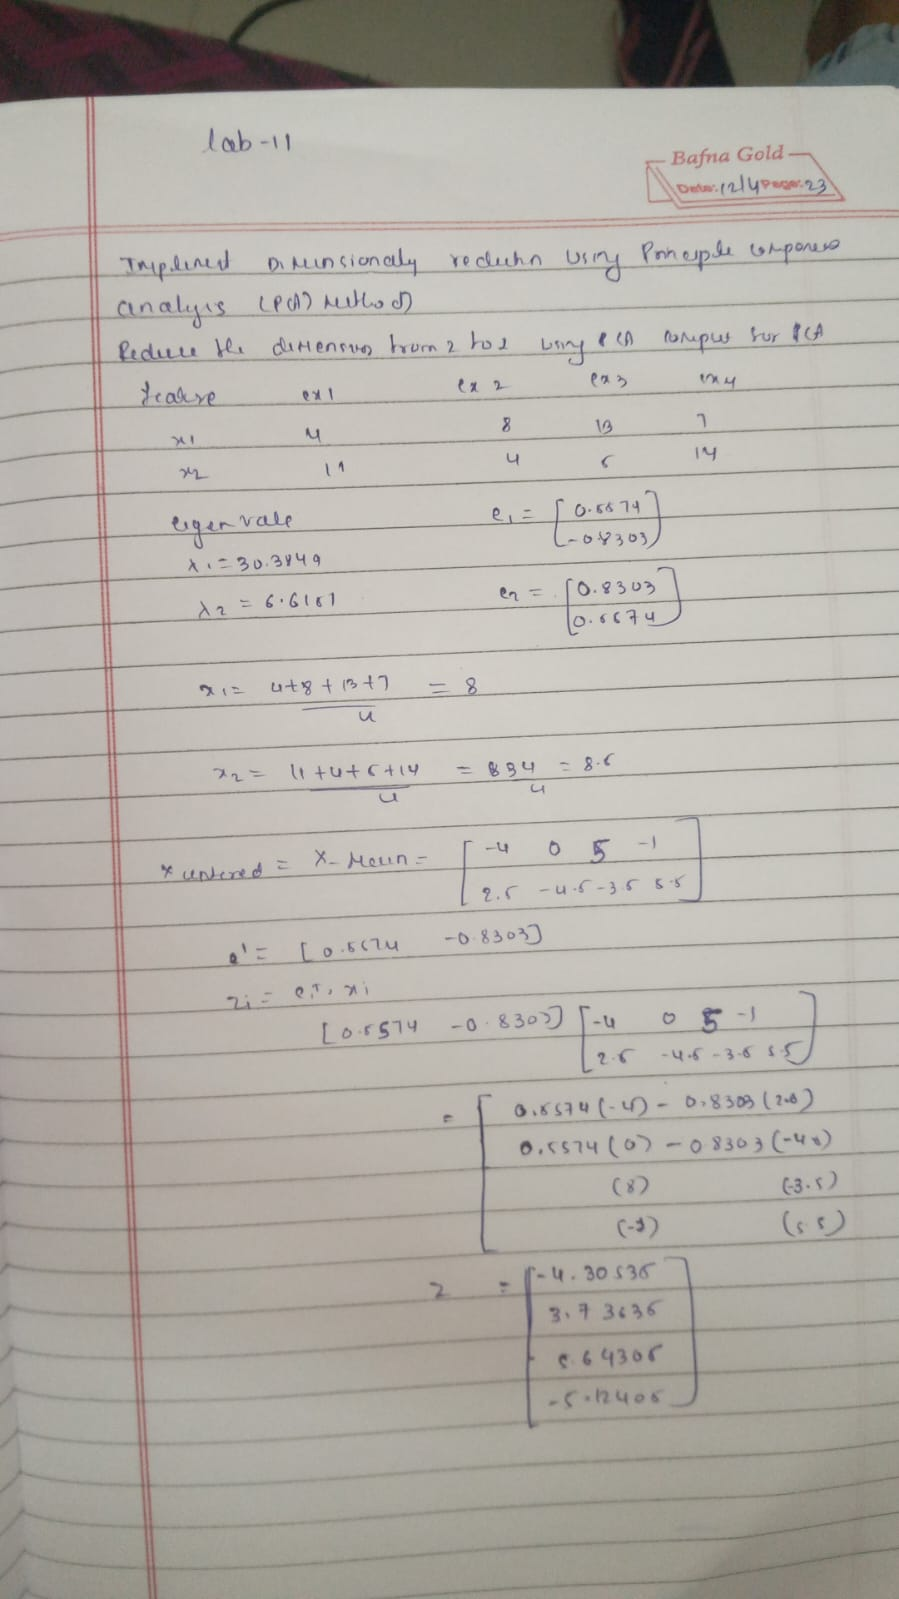 lab-11
Bafna Gold
Date: 12/4 Page: 23
Implement Dimensionaly reduchn using Principle
analysis (PCA) Method
Reduce the dimension from 2 to 1 using PCA
feature ex1 ex2 ex3 ex4
x1 4 8 13 7
x2 11 4 5 14
eigen vale e1 = [0.5574
-0.8303]
λ1 = 30.3849
λ2 = 6.6151 e2 = [0.8303
0.5574]
x1 = 4+8+13+7 = 8
4
x2 = 11+4+5+14 = 34 = 8.5
4 4
X - Mean = [-4 0 5 -1
2.5 -4.5 -3.5 5.5]
e' = [0.5574 -0.8303]
zi = e1T. xi
[0.5574 -0.8303] [-4 0 5 -1
2.5 -4.5 -3.5 5.5]
= [0.5574(-4) - 0.8303(2.5)
0.5574(0) - 0.8303(-4.5)
(5) (-3.5)
(-1) (5.5)
z = [-4.30535
3.73635
5.64305
-5.12405]